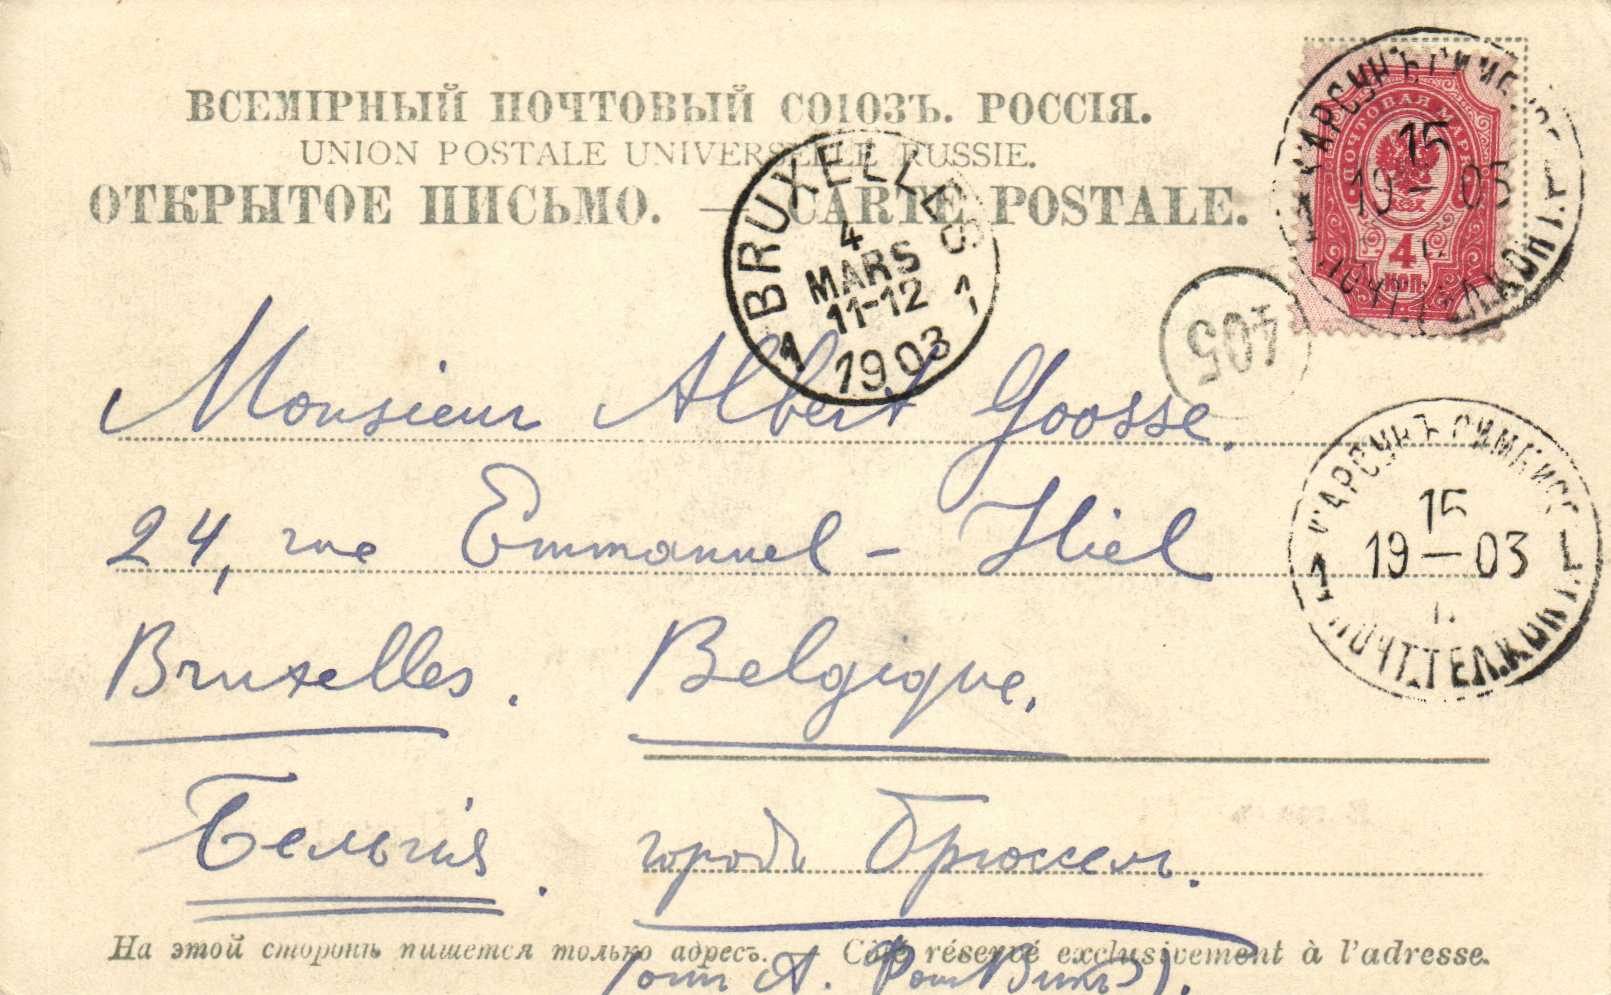 ВСЕМІРНЫЙ ПОЧТОВЫЙ СОЮЗЪ. РОССІЯ.
UNION POSTALE UNIVERSELLE RUSSIE.
ОТКРЫТОЕ ПИСЬМО. — CARTE POSTALE.
ПОЧТОВАЯ МАРКА
4
КОП.
КАРСУНЪ СИМБИРС
15
19 — 03
ПОЧТ.ТЕЛ.КОН.
1 BRUXELLES 1
4
MARS
11-12
1903
405
Monsieur Albert Goosse,
24, rue Emmanuel-Hiel
Bruxelles. Belgique.
Бельгія. городъ Брюссель.
КАРСУНЪ СИМБИРС
15
19 — 03
1
ПОЧТ.ТЕЛ.КОН.
На этой сторонѣ пишется только адресъ. — Côté réservé exclusivement à l'adresse.